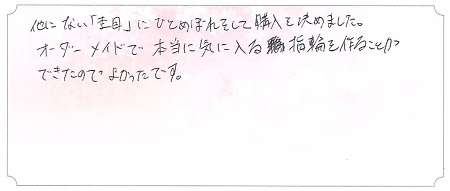 他にない「杢目」にひとめぼれをして購入を決めました。
オーダーメイドで本当に気に入る指輪を作ることが
できたのでよかったです。